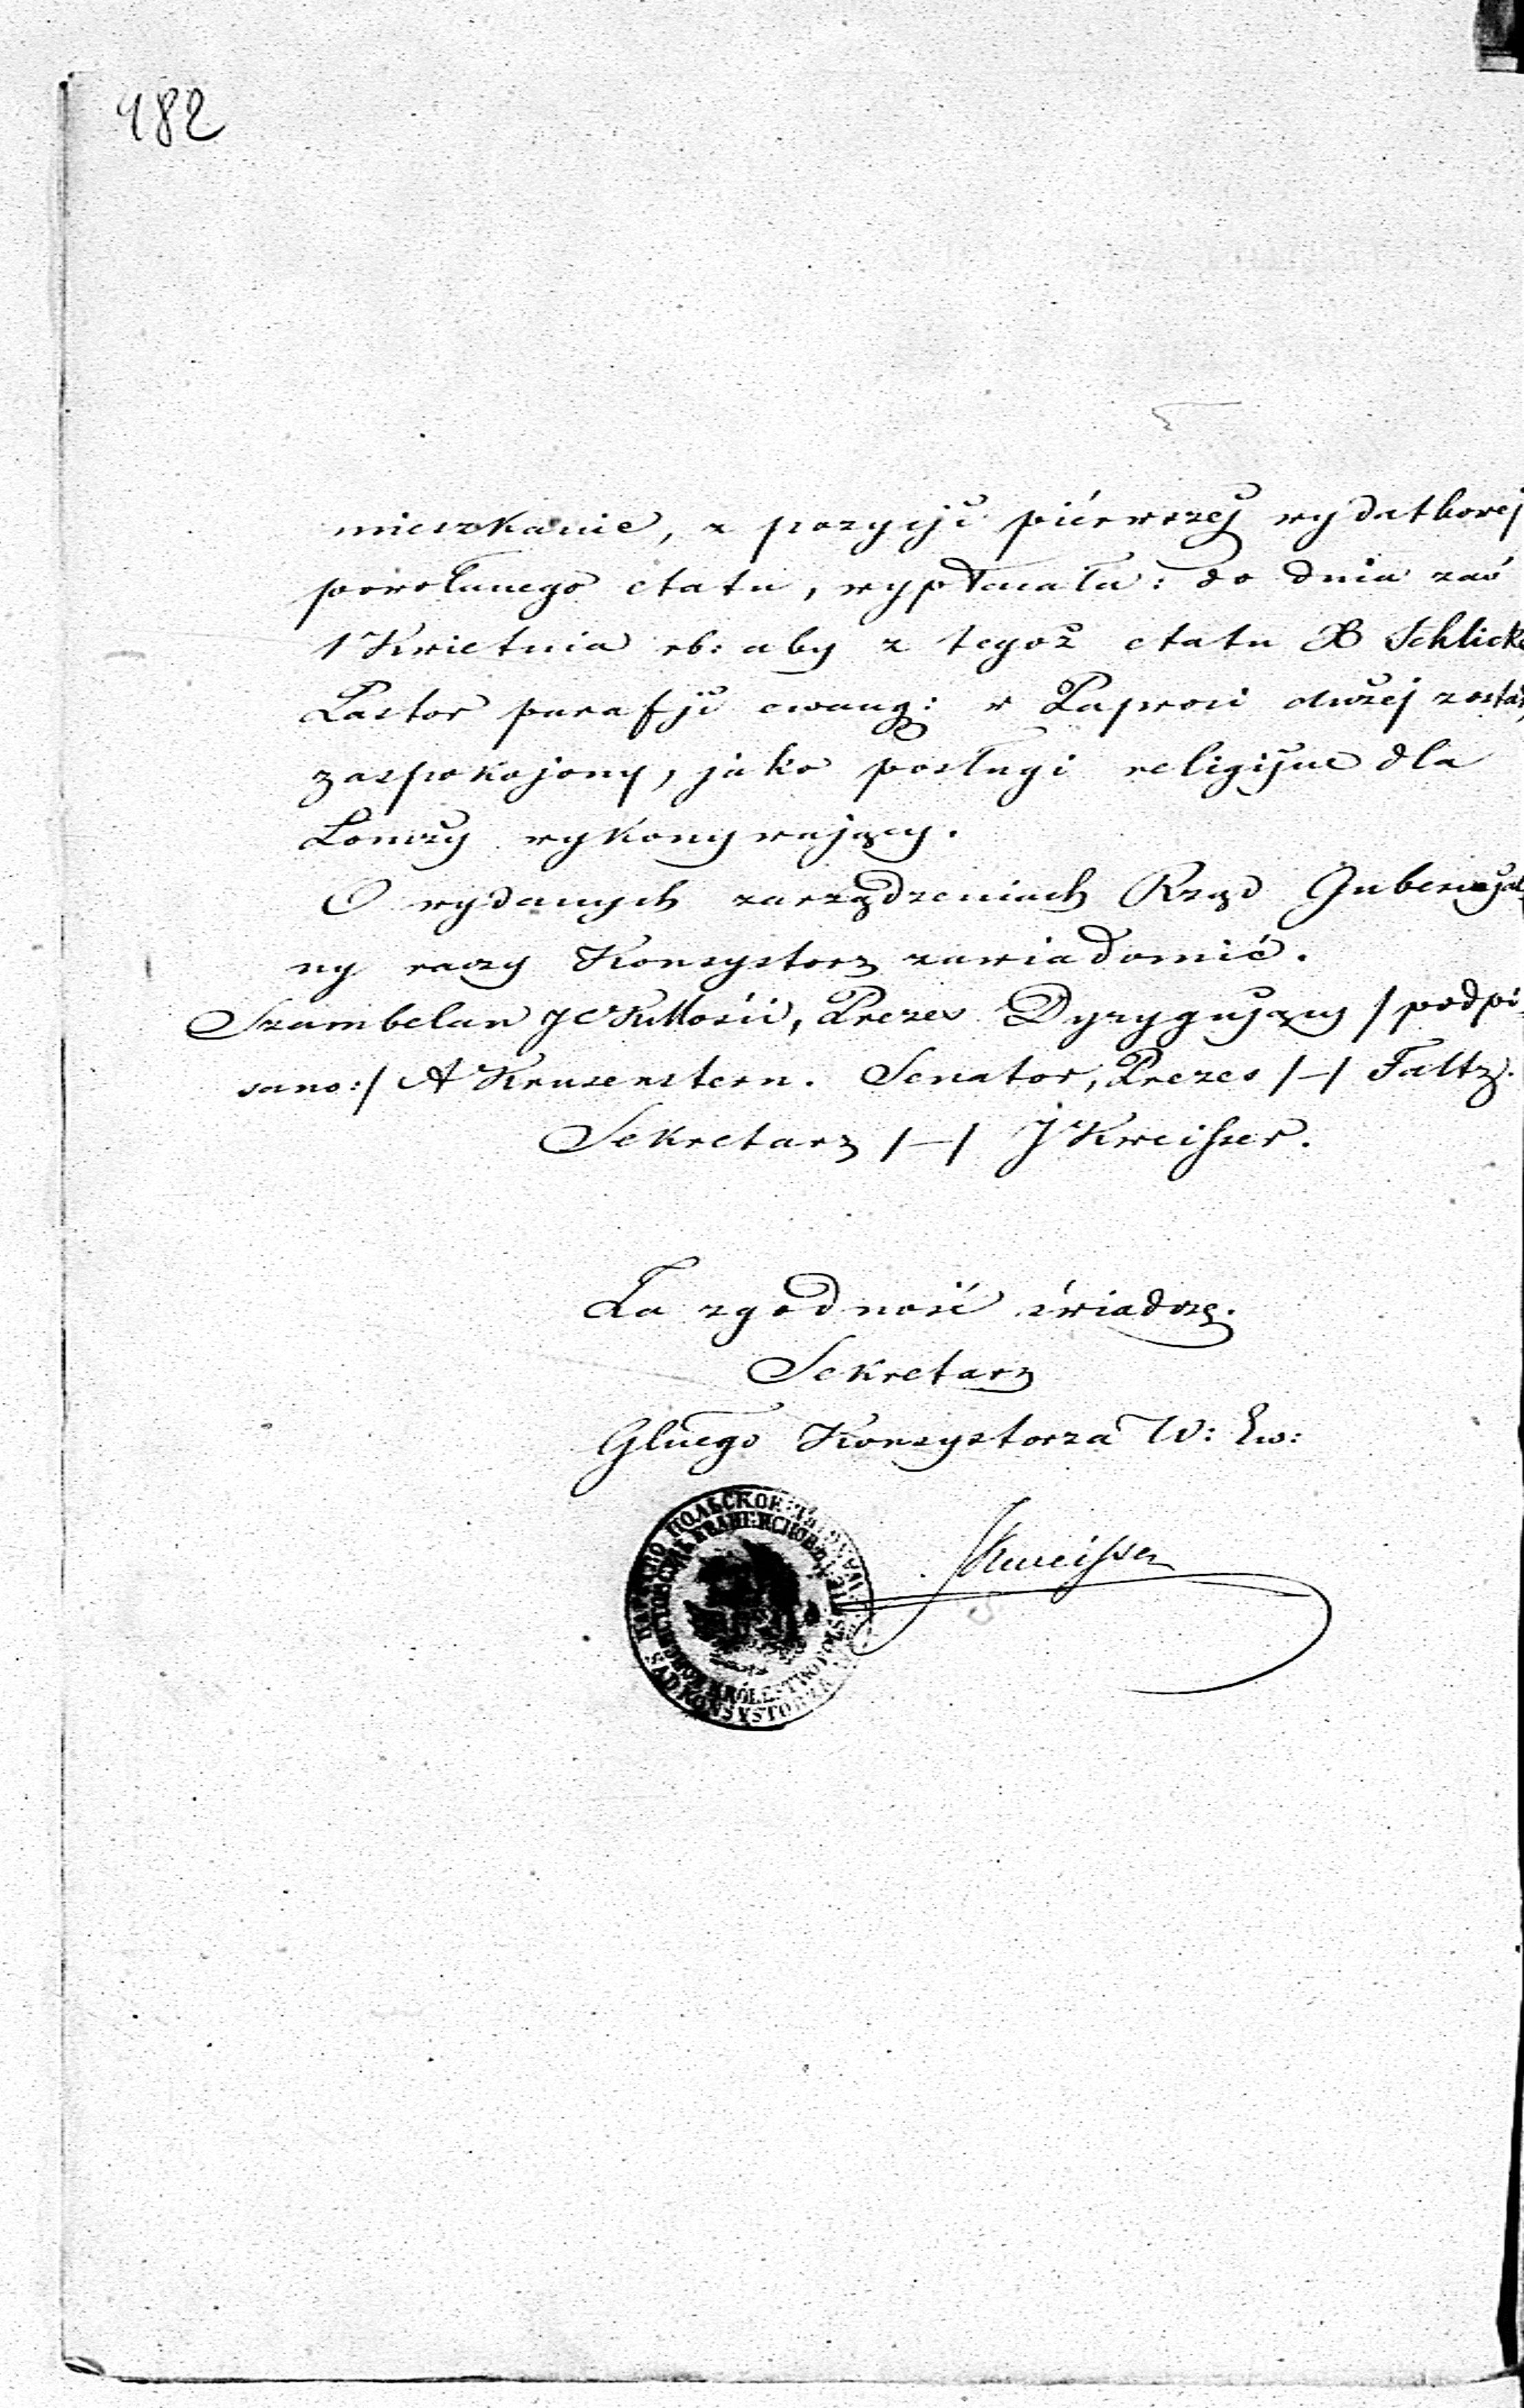 182
mieszkanie, z pozycji piérwszej wydatkowej
powołanego etatu, wypłacała: do dnia zaś
1 Kwietnia rb: aby z tegoż etatu X Schlicke
Pastor parafji ewang: w Paproci dużej został
zaspokojony, jako posługi religijne dla
Łomży wykonywający.
O wydanych zarządzeniach Rząd Gubernjal
ny raczy Konsystorz zawiadomić.
Szambelan JCKMości, Prezes Dyrygujący /podpi
sano:/ A Krusenstern. Senator, Prezes /—/ Faltz.
Sekretarz /—/ J Kweisser.
Za zgodność świadczę.
Sekretarz
Głnego Konsystorza W: Ew:
JKweisser
ПОЛЬСКОЕ
KRÓLESTWO POLS
SĄD KONSYSTORZA